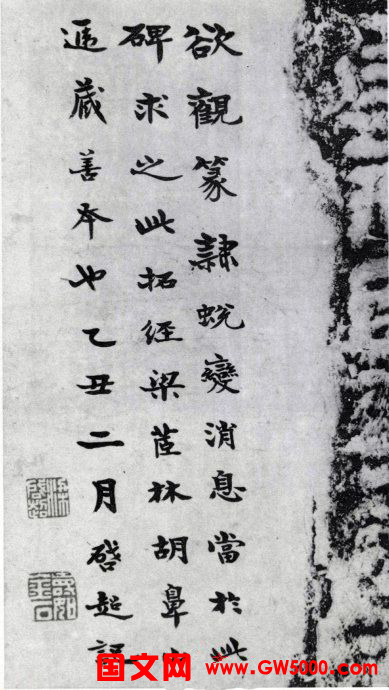 欲觀篆隷蛻變消息當於此
碑求之此拓經梁茞林胡鼻山
遞藏善本也乙丑二月啓超記
国文网 www.GW5000.com